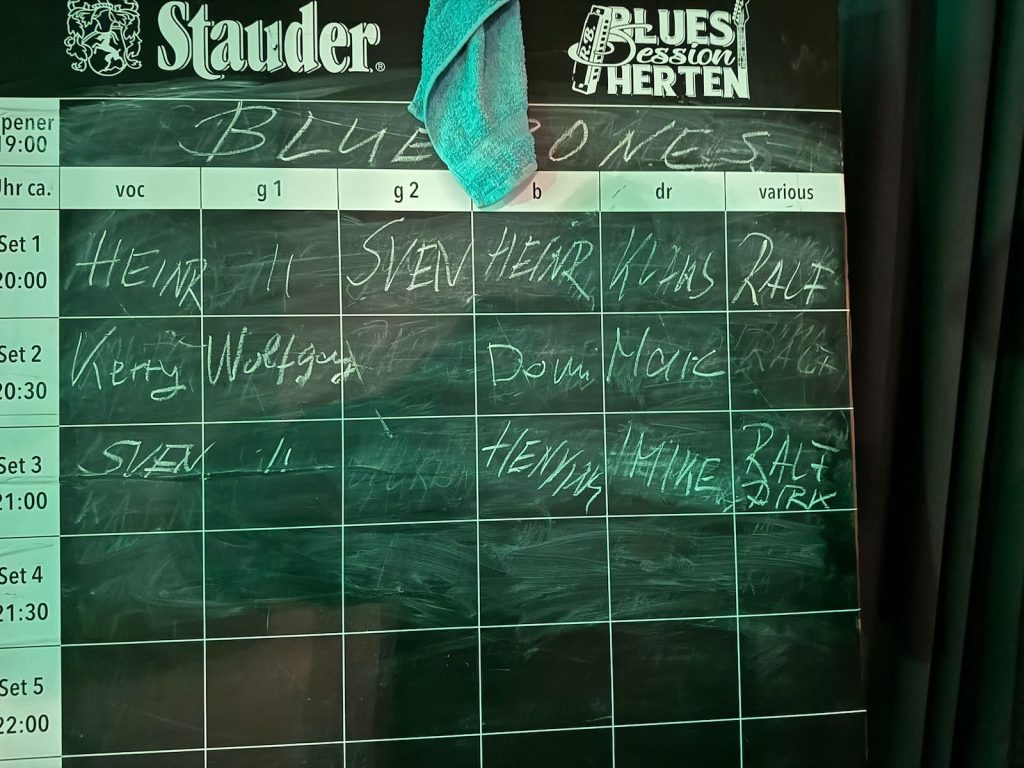 Stauder®
R.B. BLUES
Session
HERTEN
pener
19:00
BLUE ONES
Uhr ca. voc g 1 g 2 b dr various
Set 1
20:00
HEINR " SVEN HEINR KLAAS RALF
Set 2
20:30
Kerry Wolfgang Domi Maic
Set 3
21:00
SVEN " HENNING MIKE RALF
DIRK
Set 4
21:30
Set 5
22:00